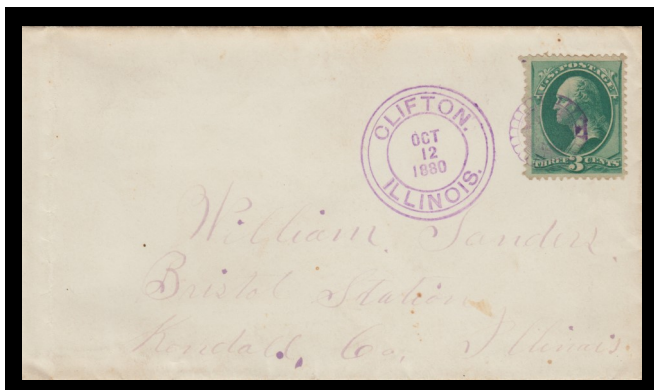 U.S. POSTAGE
THREE 3 CENTS
CLIFTON.
OCT
12
1880
ILLINOIS.
William Sanders
Bristol Station
Kendall, Co, Illinois